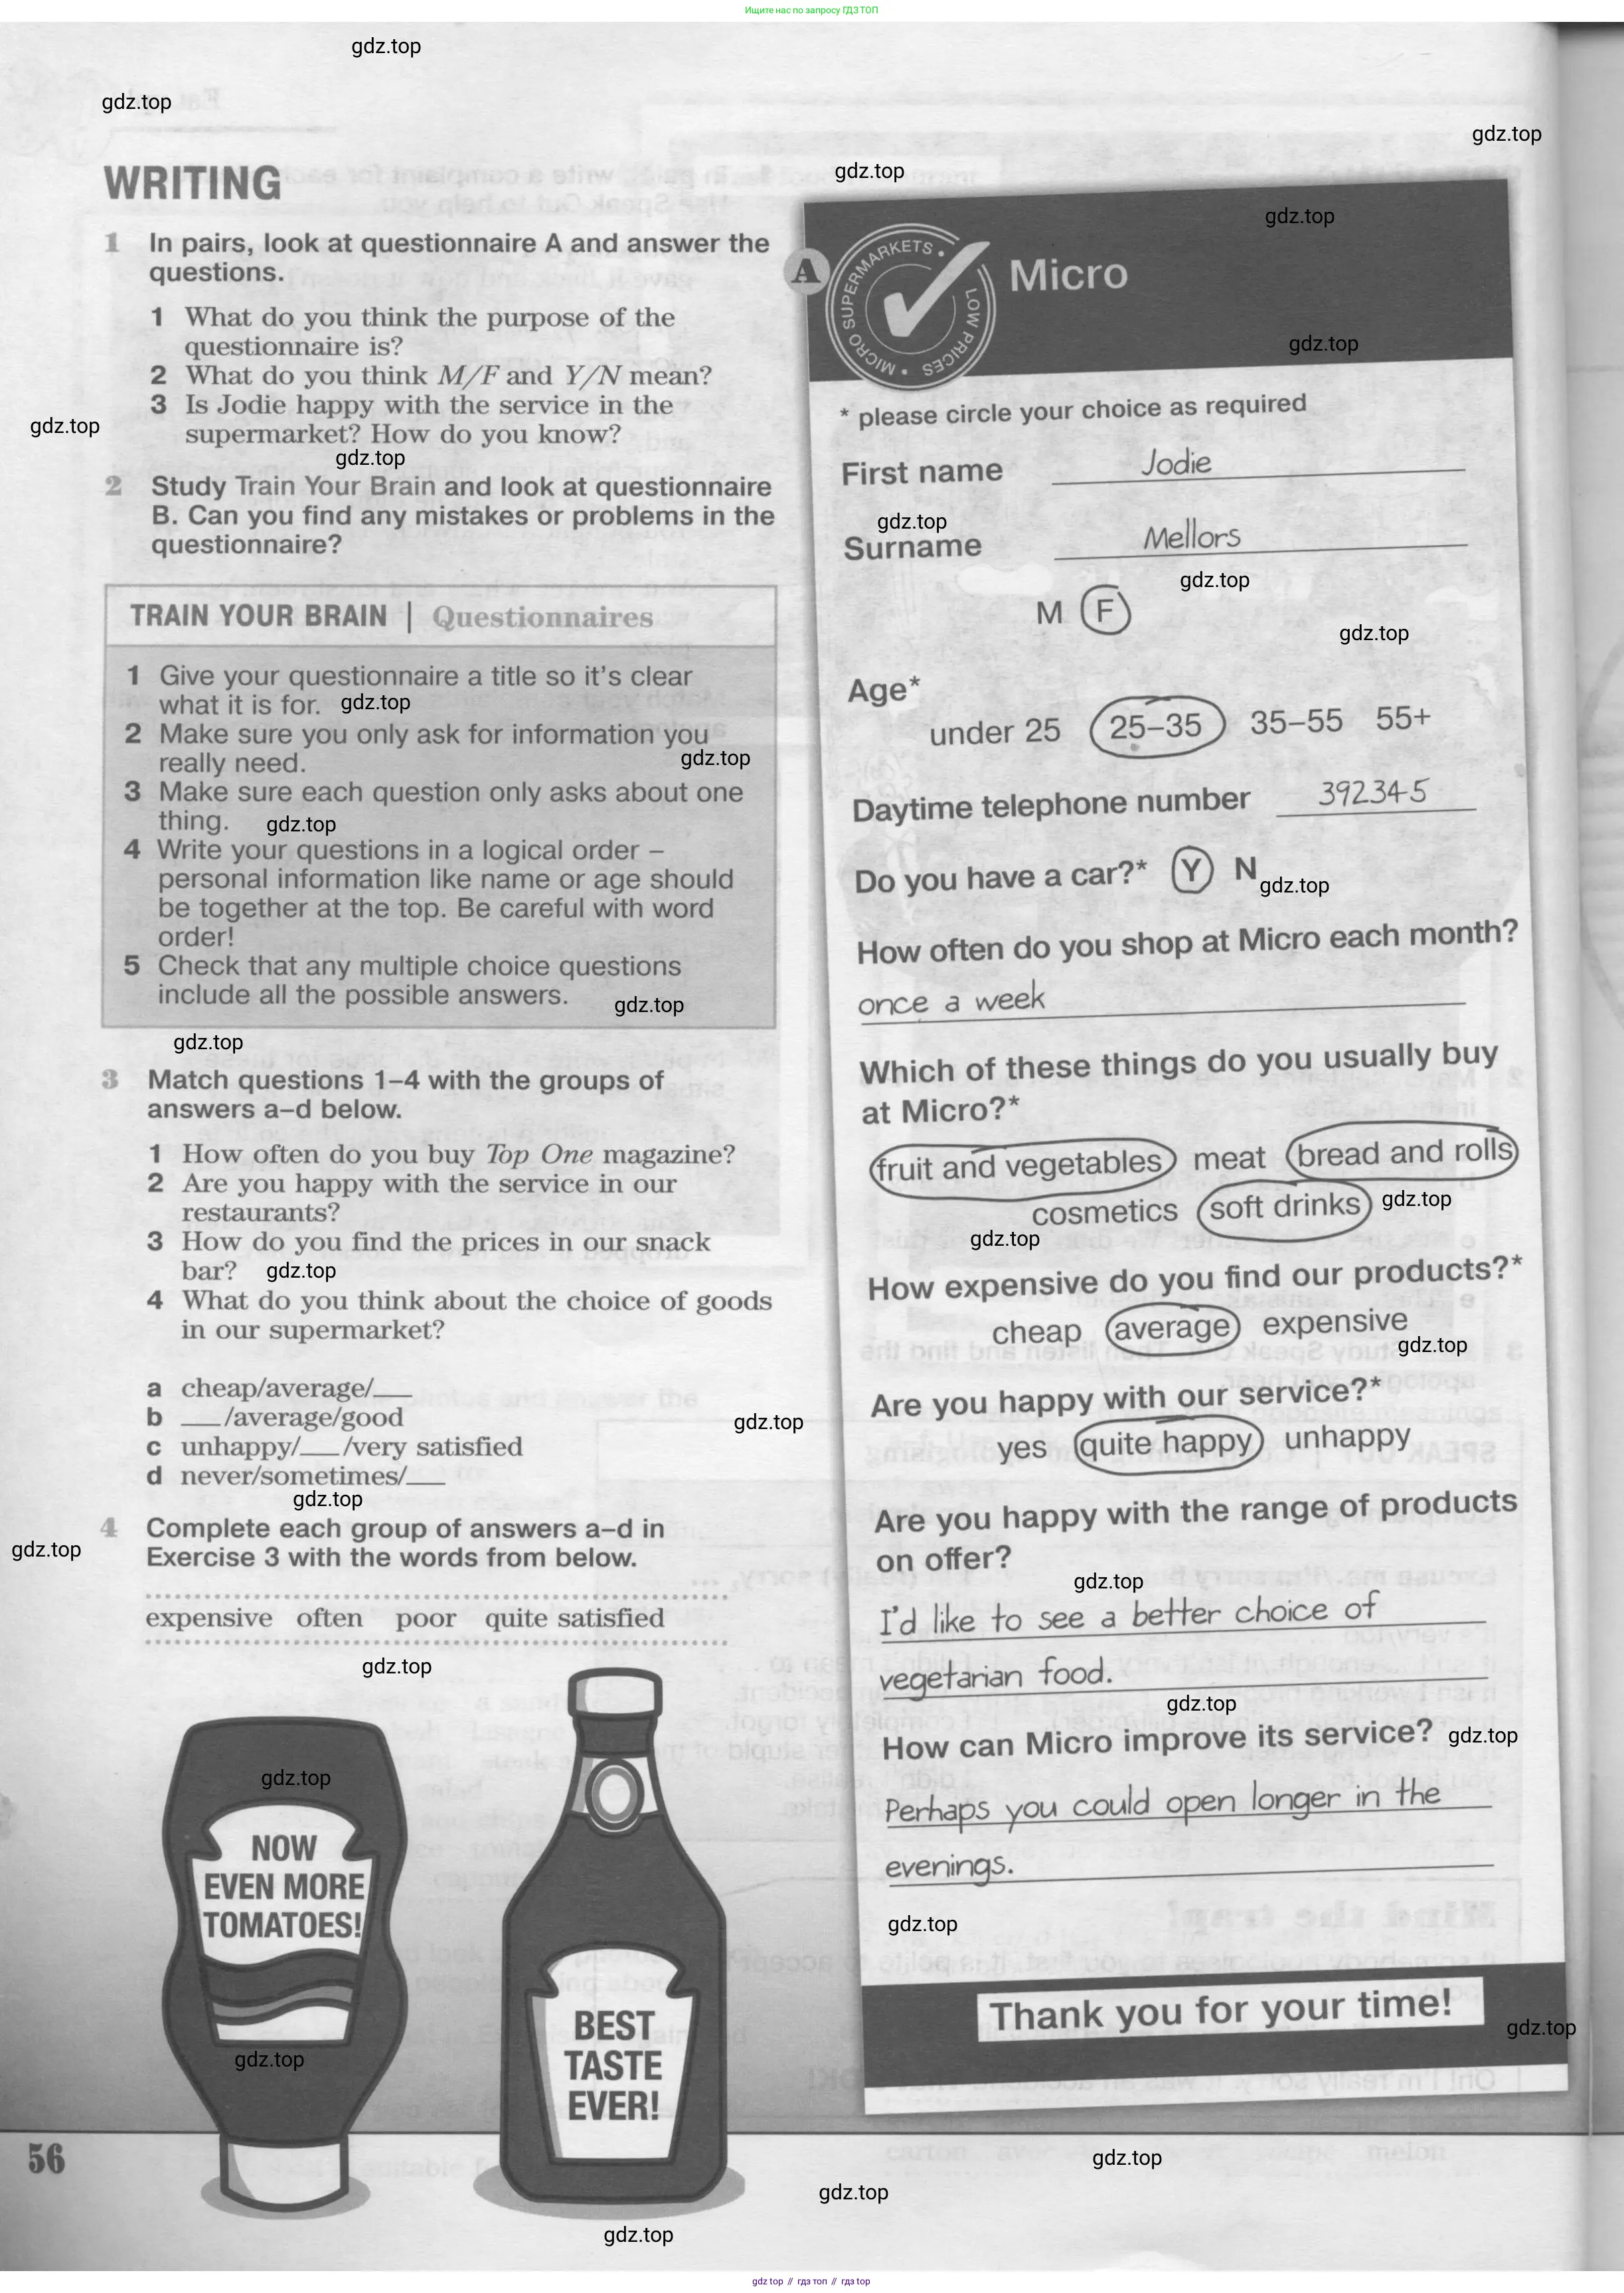 Ищите нас по запросу ГДЗ ТОП
gdz.top
gdz.top
gdz.top
gdz.top
gdz.top
WRITING
1 In pairs, look at questionnaire A and answer the
questions.
1 What do you think the purpose of the
questionnaire is?
2 What do you think M/F and Y/N mean?
3 Is Jodie happy with the service in the
supermarket? How do you know?
gdz.top
gdz.top
2 Study Train Your Brain and look at questionnaire
B. Can you find any mistakes or problems in the
questionnaire?
TRAIN YOUR BRAIN | Questionnaires
1 Give your questionnaire a title so it's clear
what it is for. gdz.top
2 Make sure you only ask for information you
really need. gdz.top
3 Make sure each question only asks about one
thing. gdz.top
4 Write your questions in a logical order –
personal information like name or age should
be together at the top. Be careful with word
order!
5 Check that any multiple choice questions
include all the possible answers. gdz.top
gdz.top
3 Match questions 1–4 with the groups of
answers a–d below.
1 How often do you buy Top One magazine?
2 Are you happy with the service in our
restaurants?
3 How do you find the prices in our snack
bar? gdz.top
4 What do you think about the choice of goods
in our supermarket?
a cheap/average/___
b ___/average/good
c unhappy/___/very satisfied
d never/sometimes/___
gdz.top
gdz.top
gdz.top
4 Complete each group of answers a–d in
Exercise 3 with the words from below.
expensive often poor quite satisfied
gdz.top
gdz.top
NOW
EVEN MORE
TOMATOES!
gdz.top
BEST
TASTE
EVER!
56
A
MICRO SUPERMARKETS • LOW PRICES •
Micro
gdz.top
* please circle your choice as required
First name Jodie
gdz.top
Surname Mellors
gdz.top
M F
gdz.top
Age*
under 25 25–35 35–55 55+
Daytime telephone number 392345
Do you have a car?* Y N
gdz.top
How often do you shop at Micro each month?
once a week
Which of these things do you usually buy
at Micro?*
fruit and vegetables meat bread and rolls
cosmetics soft drinks gdz.top
gdz.top
How expensive do you find our products?*
cheap average expensive
gdz.top
Are you happy with our service?*
yes quite happy unhappy
Are you happy with the range of products
on offer?
gdz.top
I'd like to see a better choice of
vegetarian food.
gdz.top
How can Micro improve its service? gdz.top
Perhaps you could open longer in the
evenings.
gdz.top
Thank you for your time!
gdz.top
gdz.top
gdz.top
gdz.top
gdz top // гдз топ // гдз top